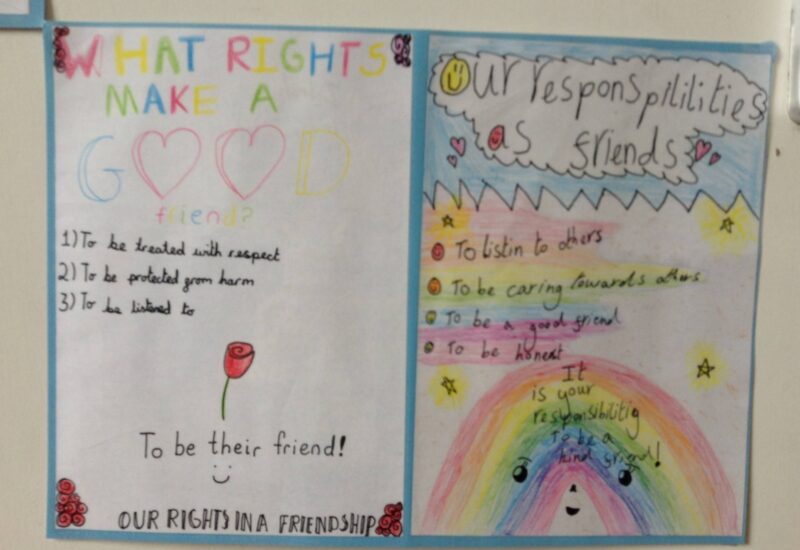 WHAT RIGHTS
MAKE A
GOOD
friend?
1) To be treated with respect
2) To be protected from harm
3) To be listened to
To be their friend!
OUR RIGHTS IN A FRIENDSHIP
Our responspililities
as friends
To listin to others
To be caring towards others
To be a good friend
To be honest
It
is your
responsibilitiy
To be a
kind friend!